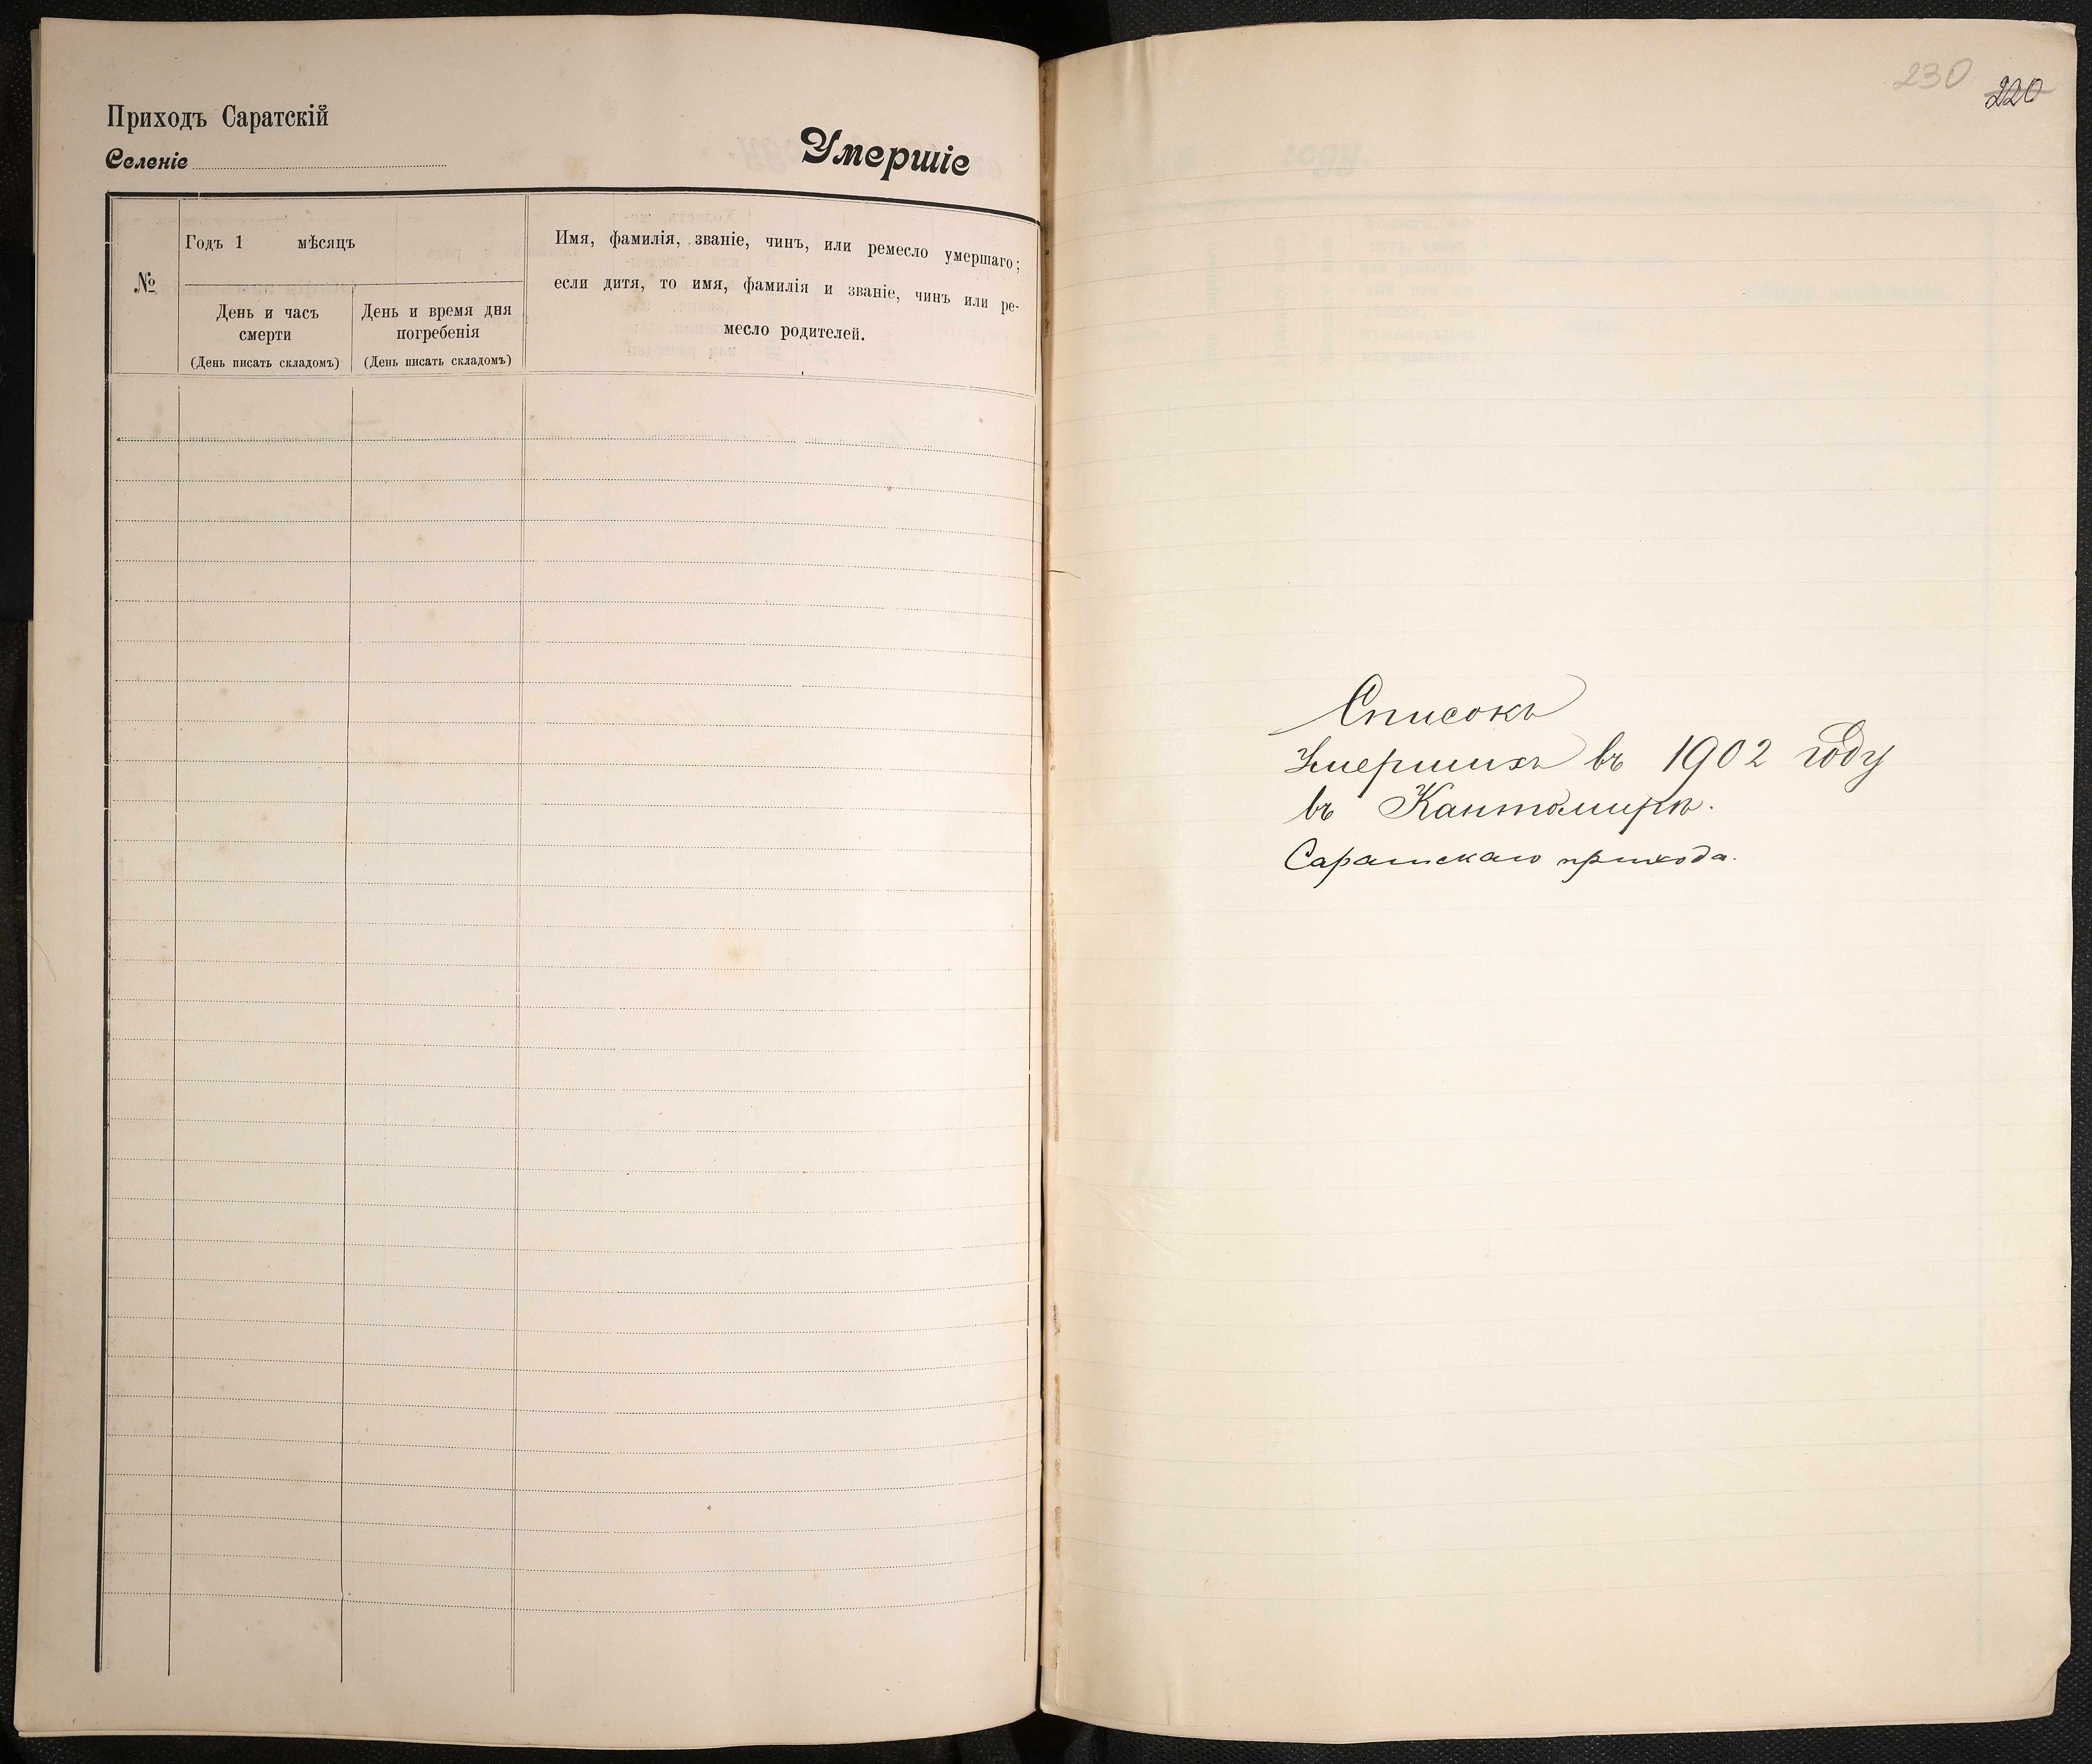 Приходъ Саратскій
Селеніе
Умершіе
№
Годъ 1 мѣсяцъ
День и часъ
смерти
(День писать складомъ)
День и время дня
погребенія
(День писать складомъ)
Имя, фамилія, званіе, чинъ, или ремесло умершаго;
если дитя, то имя, фамилія и званіе, чинъ или ре-
месло родителей.
230
220
Списокъ
Умершихъ въ 1902 году
въ Кантомирѣ.
Саратскаго прихода.